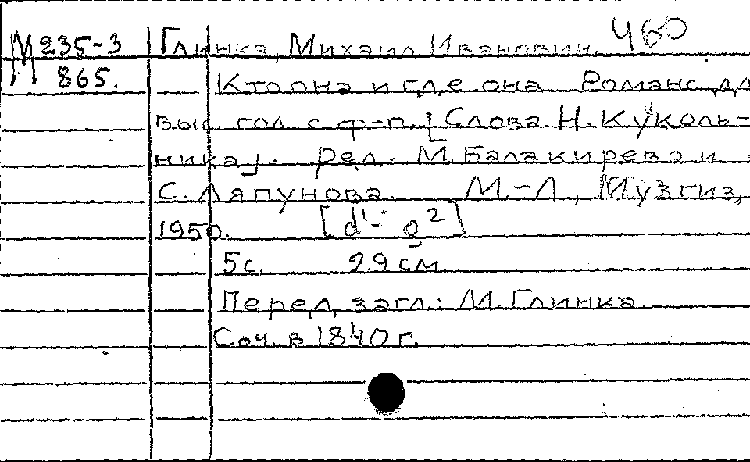 М 235-3 Глинка, Михаил Иванович. 460
865. Кто она и где она Романс дл
выс. гол. с ф-п. [Слова Н. Куколь-
ника]. Ред. М. Балакирева и
С. Ляпунова. М.-Л., Музгиз,
1950. [d¹- g²]
5 с. 29 см
Перед загл.: М. Глинка.
Соч. в 1840 г.